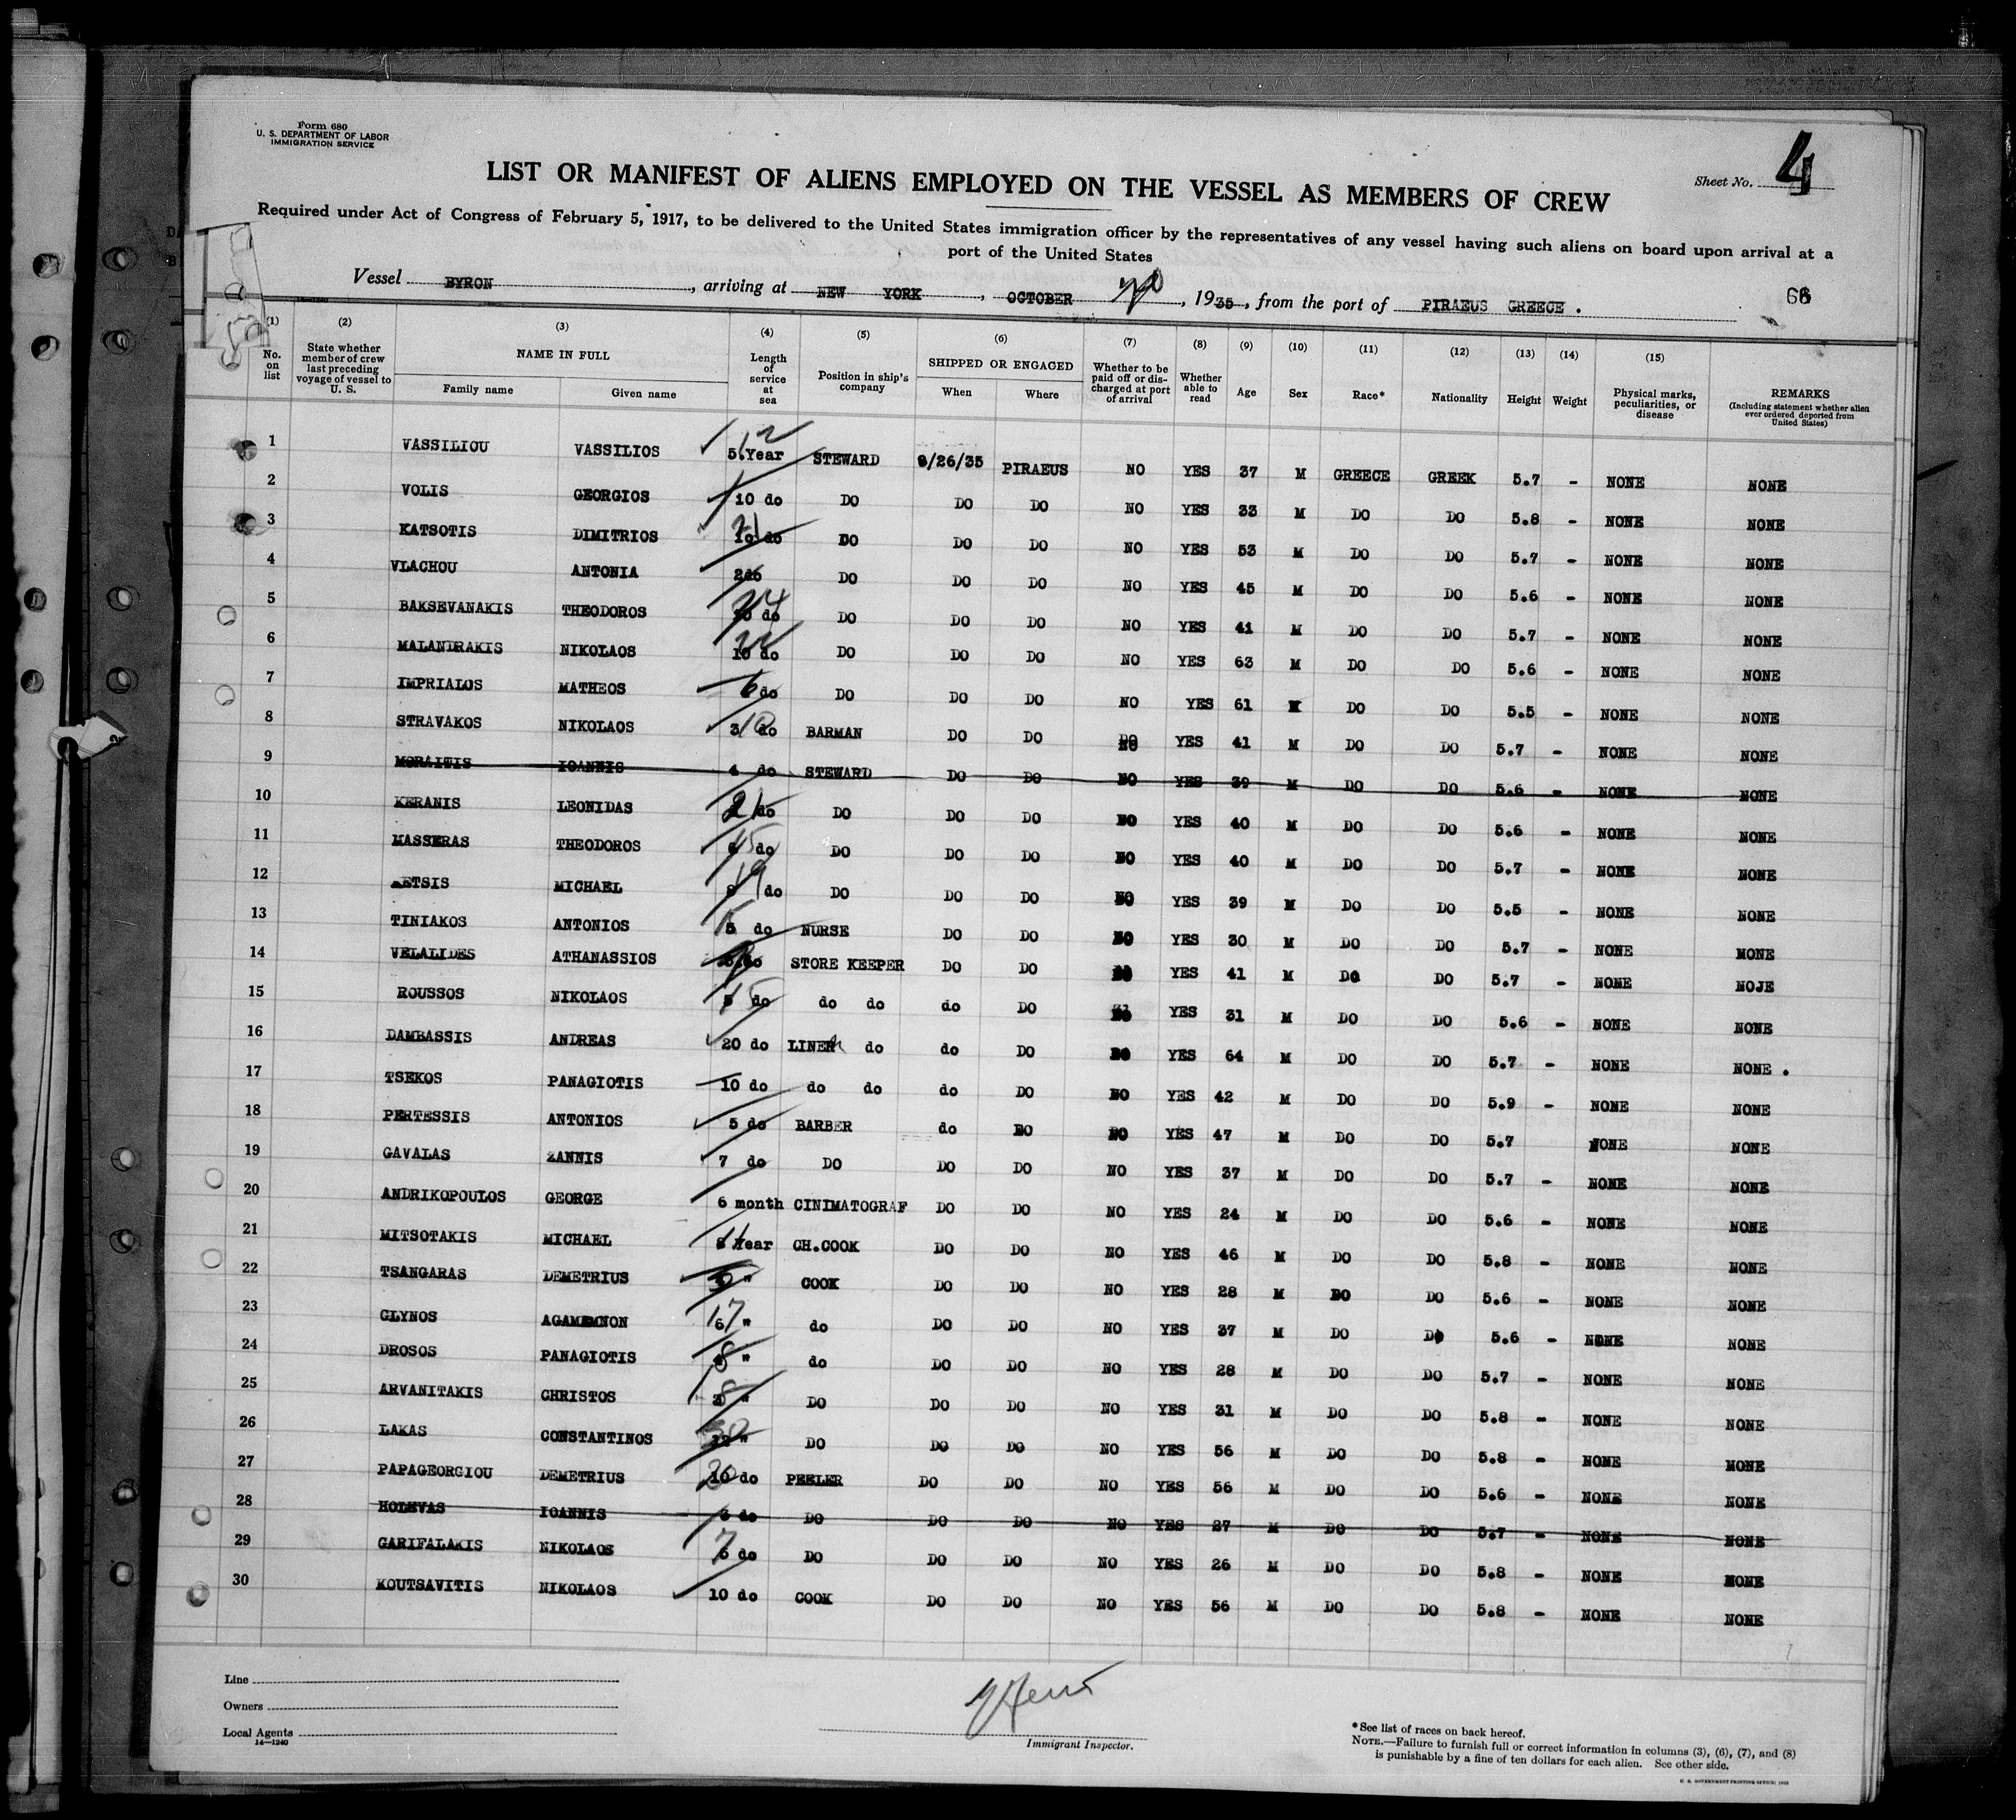 Form 680
U. S. DEPARTMENT OF LABOR
IMMIGRATION SERVICE
Sheet No. 4
LIST OR MANIFEST OF ALIENS EMPLOYED ON THE VESSEL AS MEMBERS OF CREW
Required under Act of Congress of February 5, 1917, to be delivered to the United States immigration officer by the representatives of any vessel having such aliens on board upon arrival at a
port of the United States
Vessel BYRON, arriving at NEW YORK, OCTOBER, 1935, from the port of PIRAEUS GREECE. 66
(1) No. on list (2) State whether member of crew last preceding voyage of vessel to U. S. (3) NAME IN FULL Family name Given name (4) Length of service at sea (5) Position in ship's company (6) SHIPPED OR ENGAGED When Where (7) Whether to be paid off or discharged at port of arrival (8) Whether able to read (9) Age (10) Sex (11) Race* (12) Nationality (13) Height (14) Weight (15) Physical marks, peculiarities, or disease REMARKS (Including statement whether alien ever ordered deported from United States)
1 VASSILIOU VASSILIOS 12 5 Year STEWARD 9/26/35 PIRAEUS NO YES 37 M GREECE GREEK 5.7 - NONE NONE
2 VOLIS GEORGIOS 10 do DO DO DO NO YES 33 M DO DO 5.8 - NONE NONE
3 KATSOTIS DIMITRIOS 21 10 do DO DO DO NO YES 53 M DO DO 5.7 - NONE NONE
4 VLACHOU ANTONIA 2do DO DO DO NO YES 45 M DO DO 5.6 - NONE NONE
5 BAKSEVANAKIS THEODOROS do DO DO DO NO YES 41 M DO DO 5.7 - NONE NONE
6 MALANDRAKIS NIKOLAOS 10 do DO DO DO NO YES 63 M DO DO 5.6 - NONE NONE
7 IMPRIALOS MATHEOS 6 do DO DO DO NO YES 61 M DO DO 5.5 - NONE NONE
8 STRAVAKOS NIKOLAOS 3 do BARMAN DO DO NO YES 41 M DO DO 5.7 - NONE NONE
9 MORAITIS IOANNIS 4 do STEWARD DO DO NO YES 39 M DO DO 5.6 - NONE NONE
10 KERANIS LEONIDAS 21 do DO DO DO NO YES 40 M DO DO 5.6 - NONE NONE
11 MASSERAS THEODOROS 15 6 do DO DO DO NO YES 40 M DO DO 5.7 - NONE NONE
12 ETSIS MICHAEL 19 do DO DO DO NO YES 39 M DO DO 5.5 - NONE NONE
13 TINIAKOS ANTONIOS 5 do NURSE DO DO NO YES 30 M DO DO 5.7 - NONE MONE
14 VELALIDES ATHANASSIOS STORE KEEPER DO DO YES 41 M DO DO 5.7 - NONE NOJE
15 ROUSSOS NIKOLAOS 15 5 do do do do DO YES 31 M DO DO 5.6 - NONE NONE
16 DAMBASSIS ANDREAS 20 do LINEN do do DO NO YES 64 M DO DO 5.7 - NONE NONE .
17 TSEKOS PANAGIOTIS 10 do do do do DO NO YES 42 M DO DO 5.9 - NONE NONE
18 PERTESSIS ANTONIOS 5 do BARBER do DO NO YES 47 M DO DO 5.7 NONE NONE
19 GAVALAS ZANNIS 7 do DO DO DO NO YES 37 M DO DO 5.7 - NONE NONE
20 ANDRIKOPOULOS GEORGE 6 month CINIMATOGRAF DO DO NO YES 24 M DO DO 5.6 - NONE NONE
21 MITSOTAKIS MICHAEL 11 8 Year CH.COOK DO DO NO YES 46 M DO DO 5.8 - NONE NONE
22 TSANGARAS DEMETRIUS " COOK DO DO NO YES 28 M DO DO 5.6 - NONE NONE
23 GLYNOS AGAMEMNON 17 6 " do DO DO NO YES 37 M DO DO 5.6 - NONE NONE
24 DROSOS PANAGIOTIS 8 " do DO DO NO YES 28 M DO DO 5.7 - NONE NONE
25 ARVANITAKIS CHRISTOS 8 " DO DO DO NO YES 31 M DO DO 5.8 - NONE NONE
26 LAKAS CONSTANTINOS 30 22 " DO DO DO NO YES 56 M DO DO 5.8 - NONE MONE
27 PAPAGEORGIOU DEMETRIUS 20 10 do PEELER DO DO NO YES 56 M DO DO 5.6 - NONE NONE
28 HOLEVAS IOANNIS 6 do DO DO DO NO YES 27 M DO DO 5.7 - NONE NONE
29 GARIFALAKIS NIKOLAOS 7 6 do DO DO DO NO YES 26 M DO DO 5.8 - NONE NONE
30 KOUTSAVITIS NIKOLAOS 10 do COOK DO DO NO YES 56 M DO DO 5.8 - NONE NONE
Line
Owners
Local Agents
14—1240
Immigrant Inspector.
*See list of races on back hereof.
NOTE.—Failure to furnish full or correct information in columns (3), (6), (7), and (8)
is punishable by a fine of ten dollars for each alien. See other side.
U. S. GOVERNMENT PRINTING OFFICE: